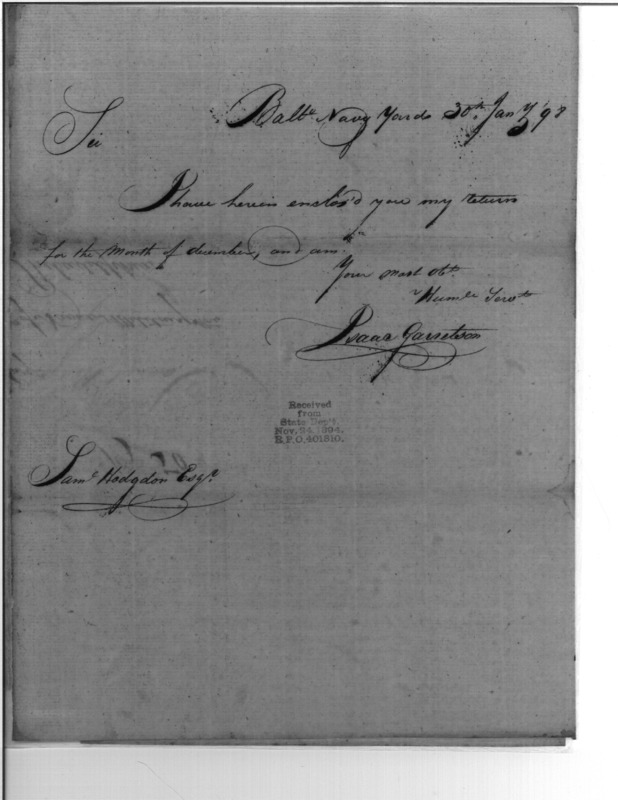 Balte Navy Yards 30th Jany '98
Sir
I have herein enclos'd you my return
for the Month of december, and am
Your most Obt
Humle Servt
Isaac Garretson
Received
from
State Dep't,
Nov. 24, 1894.
R.P.O. 401810.
Saml Hodgdon Esqr.